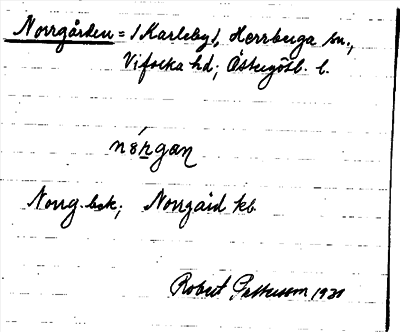 Norrgården = /Karleby/, Herrberga sn.,
Vifolka hd; Östergötl. l.
nórgan
Norrg. bsk; Norrgård kb.
Robert Pettersson 1931